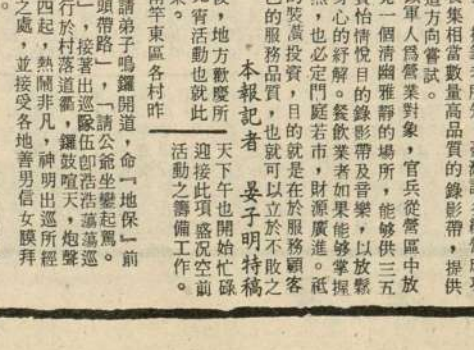 集相當數量高品質的錄影帶,提供
這方向嘗試。
軍人爲營業對象,官兵從營區中放
一個清幽雅靜的場所,能够供三五
怡情悅目的錄影帶及音樂,以放鬆
身心的紓解。餐飲業者如果能够掌握
,也必定門庭若市,財源廣進。祗
的裝潢投資,目的就是在於服務顧客
的服務品質,也就可以立於不敗之
本報記者 晏子明特稿
,地方歡慶所
元宵活動也就此
來。
南竿東區各村昨
天下午也開始忙碌
迎接此項盛況空前
活動之籌備工作。
請弟子鳴鑼開道,命『地保』前
頭帶路」,「請公爺坐鑾起駕。
」,接著出巡隊伍卽浩浩蕩蕩巡
行於村落道衢,鑼鼓喧天,炮聲
四起,熱鬧非凡,神明出巡所經
之處,並接受各地善男信女膜拜